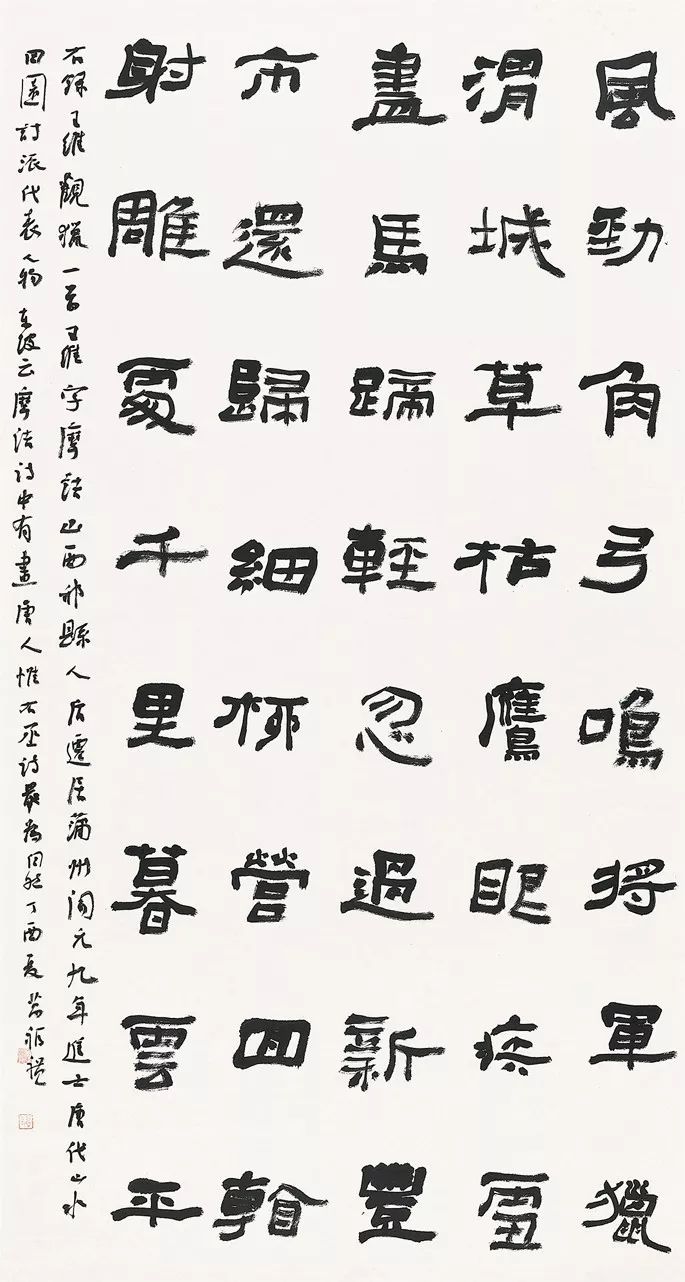 風勁角弓鳴將軍獵
渭城草枯鷹眼疾雪
盡馬蹄輕忽過新豐
市還歸細柳營回看
射雕處千里暮雲平
右錄王維觀獵一首王維字摩詰山西祁縣人后遷居蒲州開元九年進士唐代山水
田園詩派代表人物東坡云摩詰詩中有畫唐人惟右丞詩最為自然丁酉夏